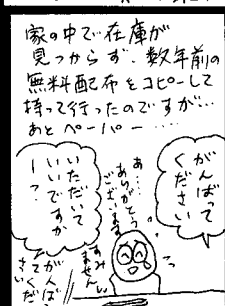 家の中で在庫が
見つからず、数年前の
無料配布をコピーして
持って行ったのですが…
あとペーパー……
がんばって
ください
あ…
ありがとう
ございます
すみ
ません
いただいて
いいですか
ー？
がんば
ってくだ
さい